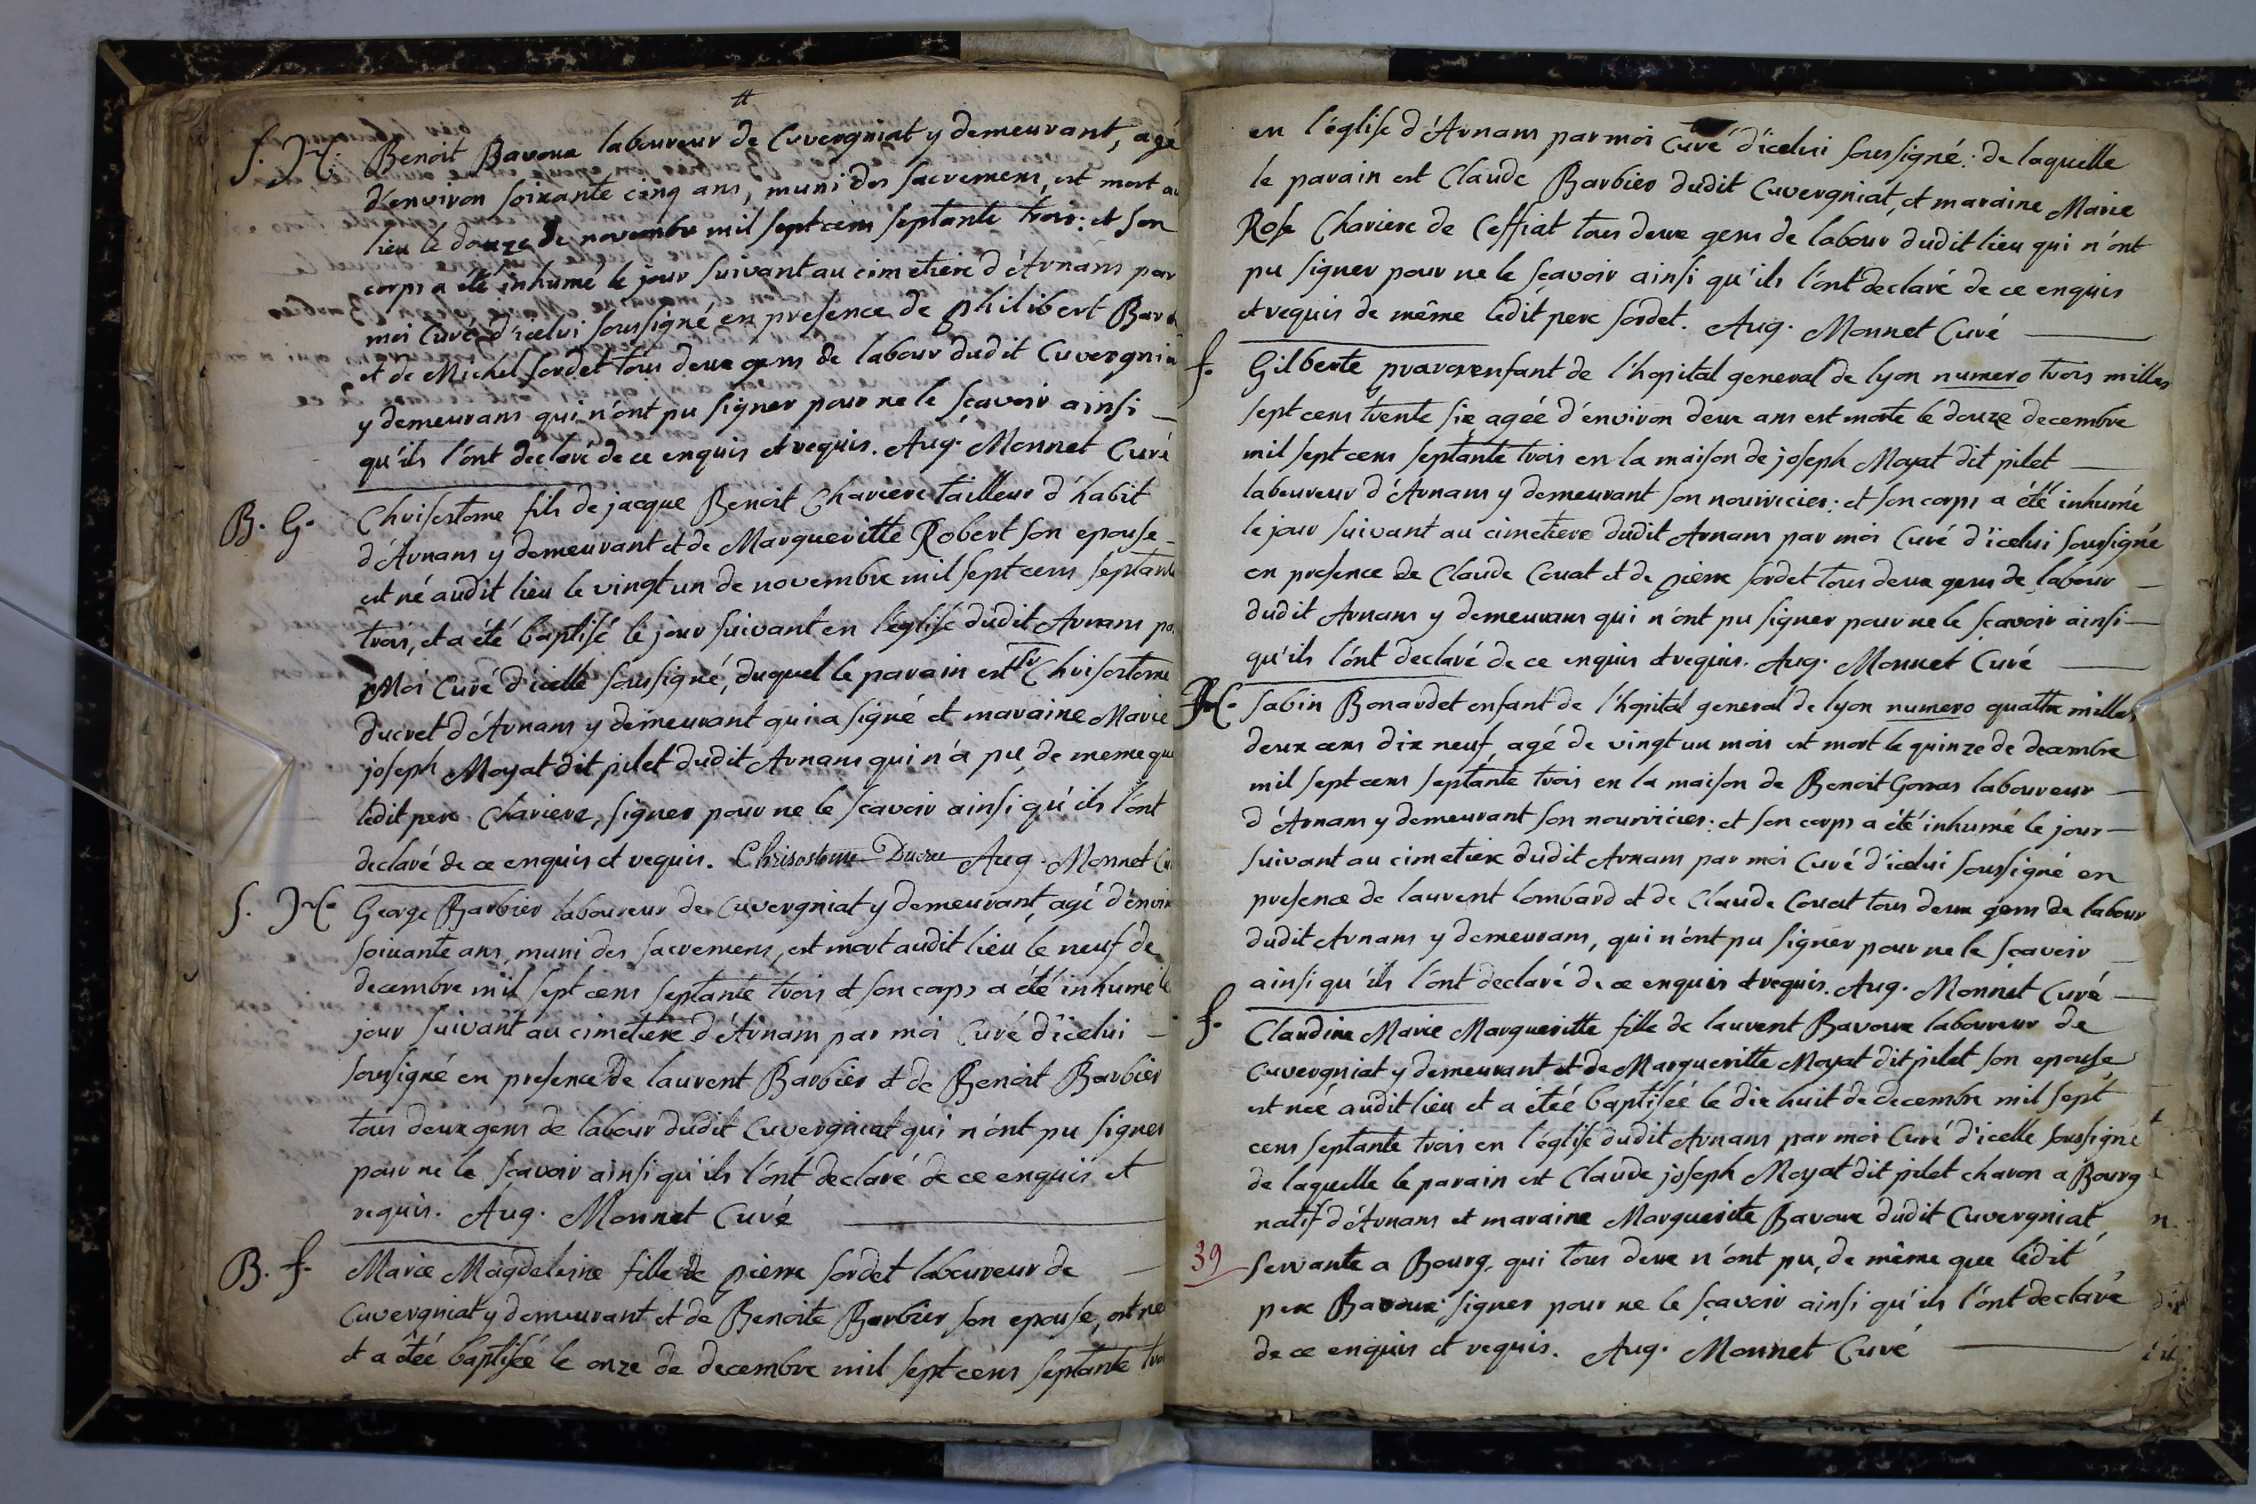 S. M. Benoit Bavoux laboureur de Cuvergniat y demeurant, agé
d'environ soixante cinq ans, muni des sacremens, est mort au
lieu le douze de novembre mil sept cens septante trois: et son
corps a été inhumé le jour suivant au cimetiere d'Arnans par
moi Curé d'icelui soussigné en presence de philibert
et de Michel sordet tous deux gens de labour dudit Cuvergnia
y demeurans qui n'ont pu signer pour ne le sçavoir ainsi
qu'ils l'ont declaré de ce enquis et requis. Aug. Monnet Curé
B. G. Chrisostome fils de jacque Benoit Chariere tailleur d'habit
d'Arnans y demeurant et de Margueritte Robert son epouse
est né audit lieu le vingt un de novembre mil sept cens septante
trois, et a été baptisé le jour suivant en l'église dudit Arnans
Moi Curé d'icelle soussigné, duquel le parain est sr Chrisostome
ducret d'Arnans y demeurant qui a signé et maraine Marie
joseph Moyat dit pilet dudit Arnans qui n'a pu, de meme que
ledit pere Chariere, signer pour ne le scavoir ainsi qu'ils l'ont
declaré de ce enquis et requis. Chrisostome Ducret Aug. Monnet Cu
S. M. George Barbier laboureur de Cuvergniat y demeurant, agé d'envir
soixante ans, muni des sacremens, est mort audit lieu le neuf de
decembre mil sept cens septante trois et son corps a été inhumé le
jour suivant au cimetiere d'Arnans par moi Curé d'icelui
soussigné en presence de laurent Barbier et de Benoit Barbier
tous deux gens de labour dudit Cuvergniat qui n'ont pu signer
pour ne le scavoir ainsi qu'ils l'ont declaré de ce enquis et
requis. Aug. Monnet Curé
B. f. Marie Magdeleine fille de pierre sordet laboureur de
Cuvergniat y demeurant et de Benoite Barbier son epouse, est née
et a étéé baptiséé le onze de decembre mil sept cens septante tro
en l'église d'Arnans par moi Curé d'icelui soussigné: de laquelle
le parain est Claude Barbier dudit Cuvergniat, et maraine Marie
Rose Chariere de Ceffiat tous deux gens de labour dudit lieu qui n'ont
pu signer pour ne le scavoir ainsi qu'ils l'ont declaré de ce enquis
et requis de même ledit pere sordet. Aug. Monnet Curé
f. Gilberte enfant de l'hopital general de lyon numero trois milles
sept cens trente six agéé d'environ deux ans est morte le douze decembre
mil sept cens septante trois en la maison de joseph Moyat dit pilet
laboureur d'Arnans y demeurant son nourricier: et son corps a été inhumé
le jour suivant au cimetiere dudit Arnans par moi Curé d'icelui soussigné
en presence de Claude Couat et de pierre sordet tous deux gens de labour
dudit Arnans y demeurans qui n'ont pu signer pour ne le scavoir ainsi
qu'ils l'ont declaré de ce enquis et requis. Aug. Monnet Curé
M. Sabin Bonardet enfant de l'hopital general de lyon numero quattre milles
deux cens dix neuf agé de vingt un mois est mort le quinze de decembre
mil sept cens septante trois en la maison de Benoit Gorras laboureur
d'Arnans y demeurant son nourricier: et son corps a été inhumé le jour
suivant au cimetiere dudit Arnans par moi Curé d'icelui soussigné en
presence de laurent lombard et de Claude Couat tous deux gens de labour
dudit Arnans y demeurans, qui n'ont pu signer pour ne le scavoir
ainsi qu'ils l'ont declaré de ce enquis et requis. Aug. Monnet Curé
f. Claudine Marie Margueritte fille de laurent Bavoux laboureur de
Cuvergniat y demeurant et de Margueritte Moyat dit pilet son epouse
est néé audit lieu et a étéé baptiséé le dix huit de decembre mil sept
cens septante trois en l'église dudit Arnans par moi Curé d'icelle soussigné
de laquelle le parain est Claude joseph Moyat dit pilet charon a Bourg
natif d'Arnans et maraine Marguerite Bavoux dudit Cuvergniat,
39 servante a Bourg, qui tous deux n'ont pu, de même que ledit
pere Bavoux signer pour ne le sçavoir ainsi qu'ils l'ont declaré
de ce enquis et requis. Aug. Monnet Curé